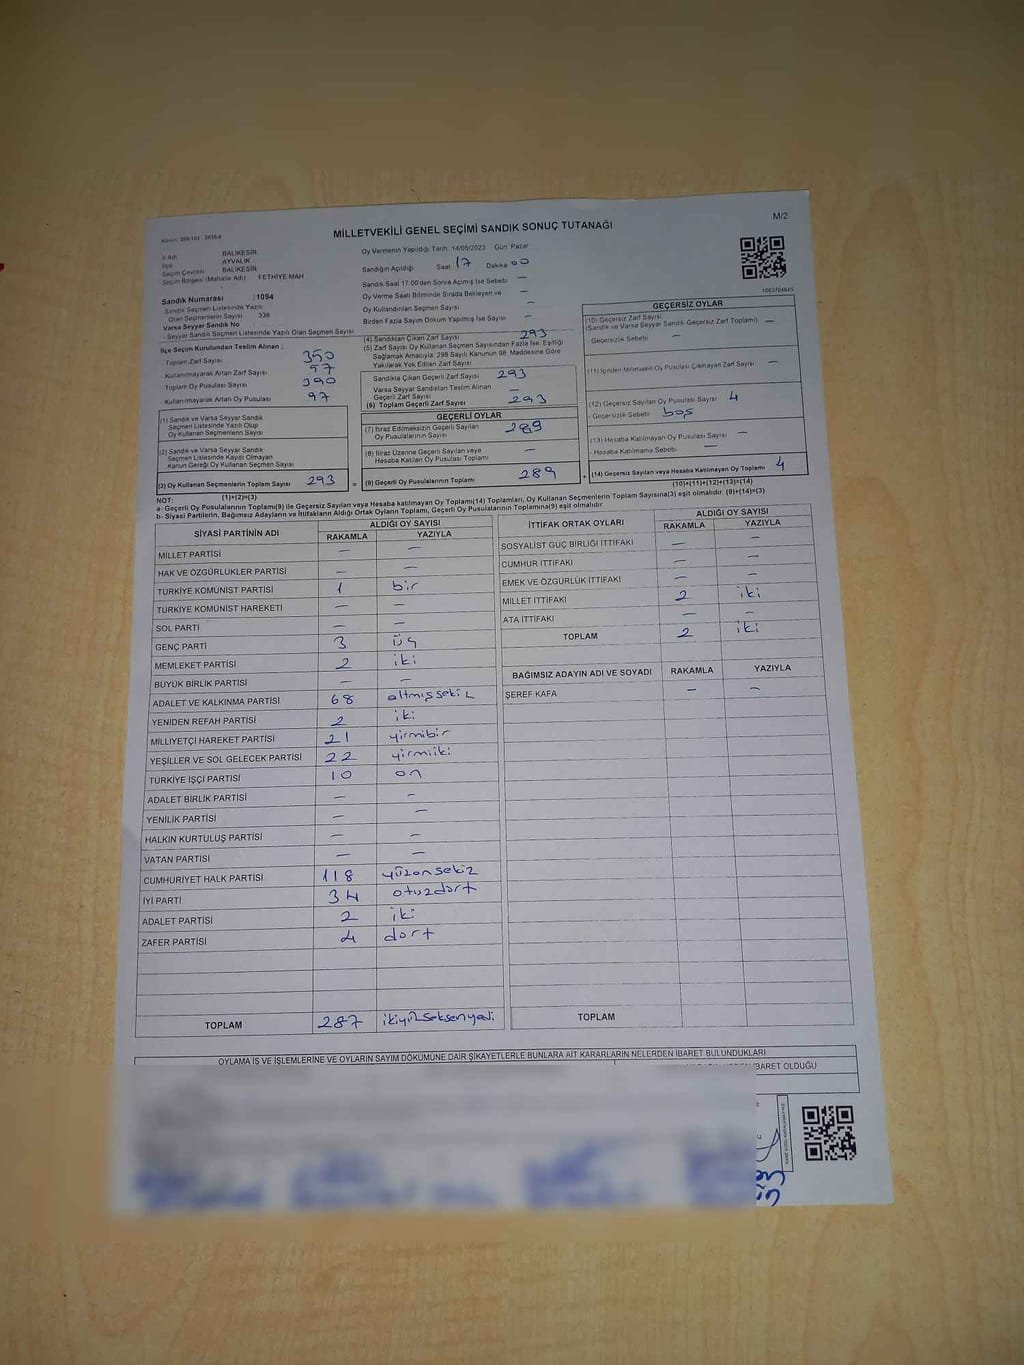 M/2
MİLLETVEKİLİ GENEL SEÇİMİ SANDIK SONUÇ TUTANAĞI
İl Adı BALIKESİR
İlçe AYVALIK
Seçim Çevresi BALIKESİR
Seçim Bölgesi (Mahalle Adı) FETHİYE MAH
Sandık Numarası :1094
Sandık Seçmen Listesinde Yazılı
Olan Seçmenlerin Sayısı 338
Varsa Seyyar Sandık No
- Seyyar Sandık Seçmen Listesinde Yazılı Olan Seçmen Sayısı
İlçe Seçim Kurulundan Teslim Alınan ;
- Toplam Zarf Sayısı : 350
- Kullanılmayarak Artan Zarf Sayısı : 97
- Toplam Oy Pusulası Sayısı 390
- Kullanılmayarak Artan Oy Pusulası 97
(1) Sandık ve Varsa Seyyar Sandık
Seçmen Listesinde Yazılı Olup
Oy Kullanan Seçmenlerin Sayısı
(2) Sandık ve Varsa Seyyar Sandık
Seçmen Listesinde Kayıtlı Olmayan
Kanun Gereği Oy Kullanan Seçmen Sayısı
(3) Oy Kullanan Seçmenlerin Toplam Sayısı 293 =
(1)+(2)=(3)
Oy Vermenin Yapıldığı Tarih: 14/05/2023 Gün: Pazar
Sandığın Açıldığı Saat 17 Dakika 00
Sandık Saat 17.00'den Sonra Açılmış İse Sebebi —
Oy Verme Saati Bitiminde Sırada Bekleyen ve —
Oy Kullandırılan Seçmen Sayısı —
Birden Fazla Sayım Döküm Yapılmış İse Sayısı —
(4) Sandıktan Çıkan Zarf Sayısı 293
(5) Zarf Sayısı Oy Kullanan Seçmen Sayısından Fazla İse, Eşitliği
Sağlamak Amacıyla 298 Sayılı Kanunun 98. Maddesine Göre
Yakılarak Yok Edilen Zarf Sayısı
Sandıkta Çıkan Geçerli Zarf Sayısı 293
Varsa Seyyar Sandıktan Teslim Alınan
Geçerli Zarf Sayısı —
(6) Toplam Geçerli Zarf Sayısı 293
GEÇERLİ OYLAR
(7) İtiraz Edilmeksizin Geçerli Sayılan
Oy Pusulalarının Sayısı 289
(8) İtiraz Üzerine Geçerli Sayılan veya
Hesaba Katılan Oy Pusulası Toplamı —
(9) Geçerli Oy Pusulalarının Toplamı 289 +
1083704845
GEÇERSİZ OYLAR
(10) Geçersiz Zarf Sayısı
(Sandık ve Varsa Seyyar Sandık Geçersiz Zarf Toplamı) —
- Geçersizlik Sebebi : —
(11) İçinden Milletvekili Oy Pusulası Çıkmayan Zarf Sayısı —
(12) Geçersiz Sayılan Oy Pusulası Sayısı 4
- Geçersizlik Sebebi : boş
(13) Hesaba Katılmayan Oy Pusulası Sayısı —
- Hesaba Katılmama Sebebi : —
(14) Geçersiz Sayılan veya Hesaba Katılmayan Oy Toplamı 4
(10)+(11)+(12)+(13)=(14)
NOT:
a- Geçerli Oy Pusulalarının Toplamı(9) ile Geçersiz Sayılan veya Hesaba katılmayan Oy Toplamı(14) Toplamları, Oy Kullanan Seçmenlerin Toplam Sayısına(3) eşit olmalıdır. (9)+(14)=(3)
b- Siyasi Partilerin, Bağımsız Adayların ve İttifakların Aldığı Ortak Oyların Toplamı, Geçerli Oy Pusulalarının Toplamına(9) eşit olmalıdır.
SİYASİ PARTİNİN ADI ALDIĞI OY SAYISI
RAKAMLA YAZIYLA
MİLLET PARTİSİ — —
HAK VE ÖZGÜRLÜKLER PARTİSİ — —
TÜRKİYE KOMÜNİST PARTİSİ 1 bir
TÜRKİYE KOMÜNİST HAREKETİ — —
SOL PARTİ — —
GENÇ PARTİ 3 üç
MEMLEKET PARTİSİ 2 iki
BÜYÜK BİRLİK PARTİSİ — —
ADALET VE KALKINMA PARTİSİ 68 altmışsekiz
YENİDEN REFAH PARTİSİ 2 iki
MİLLİYETÇİ HAREKET PARTİSİ 21 yirmibir
YEŞİLLER VE SOL GELECEK PARTİSİ 22 yirmiiki
TÜRKİYE İŞÇİ PARTİSİ 10 on
ADALET BİRLİK PARTİSİ — —
YENİLİK PARTİSİ — —
HALKIN KURTULUŞ PARTİSİ — —
VATAN PARTİSİ — —
CUMHURİYET HALK PARTİSİ 118 yüzonsekiz
İYİ PARTİ 34 otuzdört
ADALET PARTİSİ 2 iki
ZAFER PARTİSİ 4 dört
TOPLAM 287 ikiyüzseksenyedi
İTTİFAK ORTAK OYLARI ALDIĞI OY SAYISI
RAKAMLA YAZIYLA
SOSYALİST GÜÇ BİRLİĞİ İTTİFAKI — —
CUMHUR İTTİFAKI — —
EMEK VE ÖZGÜRLÜK İTTİFAKI — —
MİLLET İTTİFAKI 2 iki
ATA İTTİFAKI — —
TOPLAM 2 iki
BAĞIMSIZ ADAYIN ADI VE SOYADI RAKAMLA YAZIYLA
ŞEREF KAFA — —
TOPLAM
OYLAMA İŞ VE İŞLEMLERİNE VE OYLARIN SAYIM DÖKÜMÜNE DAİR ŞİKAYETLERLE BUNLARA AİT KARARLARIN NELERDEN İBARET BULUNDUKLARI
İBARET OLDUĞU